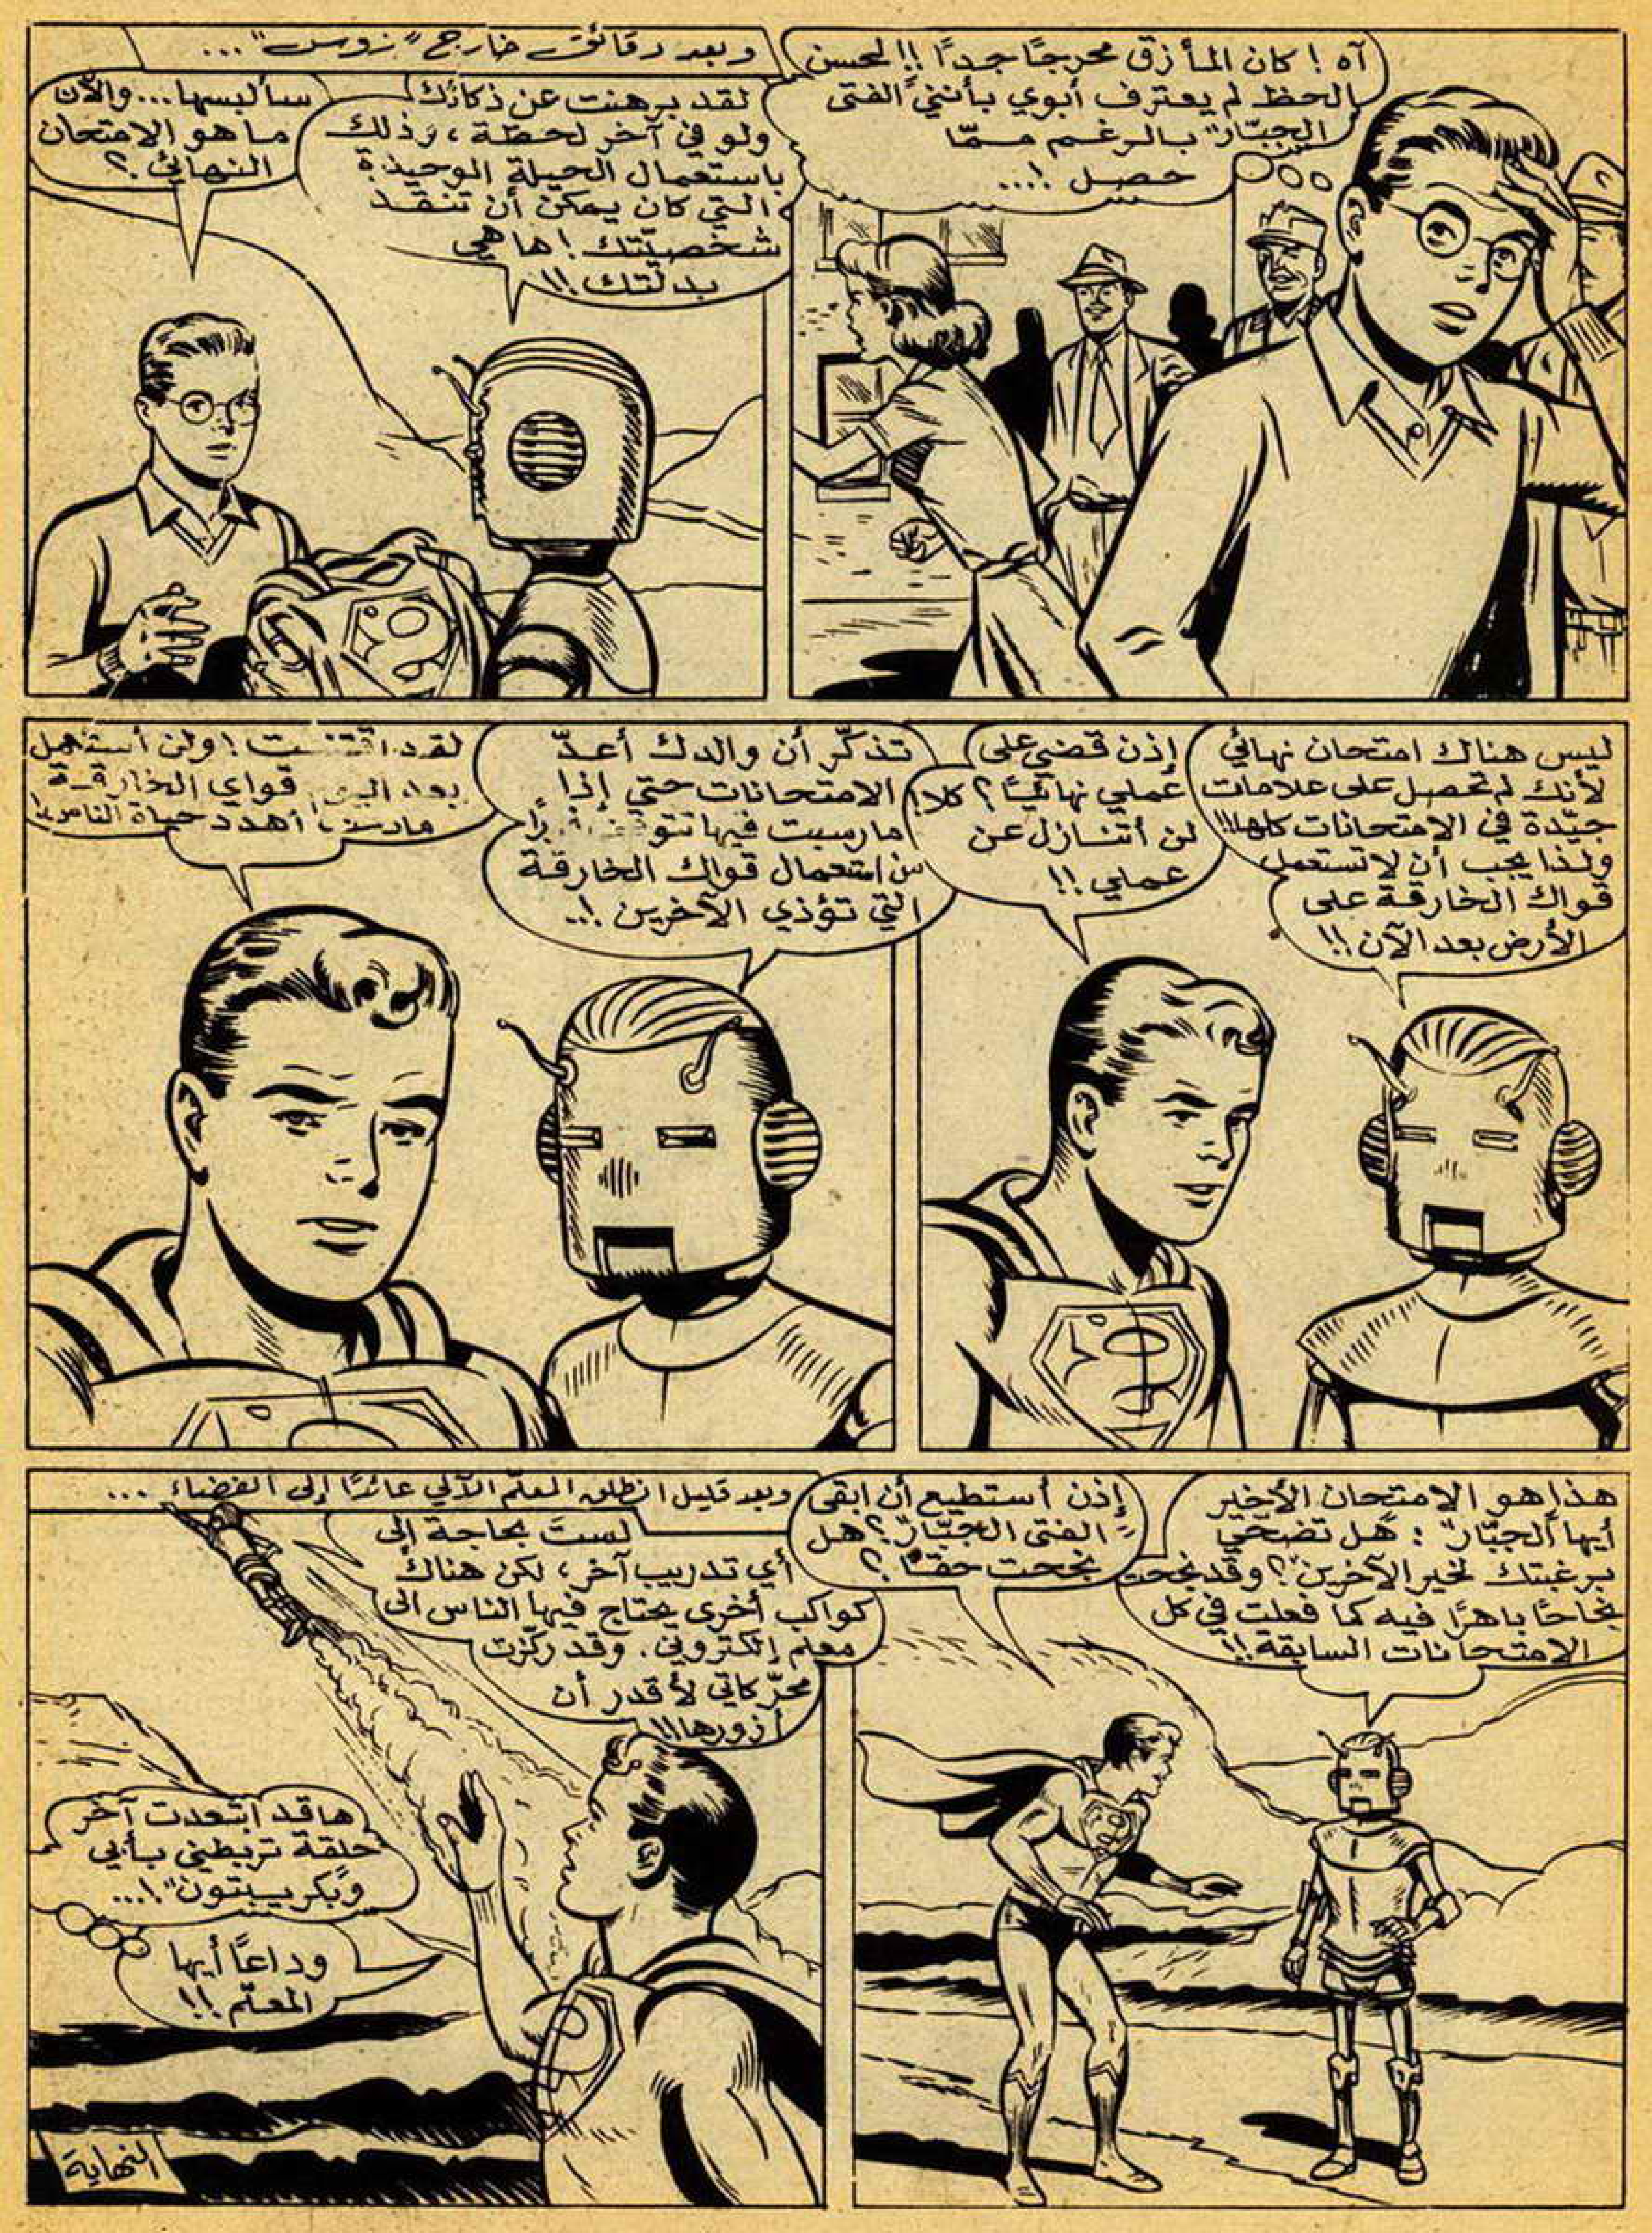 آه ! كان المأزق محرجًا جدًا !! لحسن
الحظ لم يعترف أبوي بأنني "الفتى
الجبّار" بالرغم ممّا
حصل !...
وبعد دقائق خارج "زوس"...
لقد برهنت عن ذكائك
ولو في آخر لحظة ، وذلك
باستعمال الحيلة الوحيدة
التي كان يمكن أن تنقذ
شخصيّتك ! ها هي
بدلتك !!
سألبسها... والآن
ما هو الامتحان
النهائي ؟
ليس هناك امتحان نهائي
لأنك لم تحصل على علامات
جيّدة في الامتحانات كلها !!
ولذا يجب أن لا تستعمل
قواك الخارقة على
الأرض بعد الآن !!
إذن قضي على
عملي نهائيًا ؟ كلا !
لن أتنازل عن
عملي !!
تذكّر أن والدك أعدّ
الامتحانات حتى إذا
ما رسبت فيها تتوقف
من استعمال قواك الخارقة
التي تؤذي الآخرين !..
لقد اقتنعت ! ولن أستعمل
بعد اليوم قواي الخارقة
ما دمت أهدد حياة الناس !
هذا هو الامتحان الأخير
أيها "الجبّار" : هل تضحّي
برغبتك لخير الآخرين ؟ وقد نجحت
نجاحًا باهرًا فيه كما فعلت في كل
الامتحانات السابقة !!
إذن أستطيع أن أبقى
"الفتى الجبّار" ؟ هل
نجحت حقًا ؟
وبعد قليل انطلق المعلّم الآلي عائدًا إلى الفضاء ...
لست بحاجة إلى
أي تدريب آخر ، لكن هناك
كواكب أخرى يحتاج فيها الناس الى
معلم إلكتروني . وقد ركّزت
محرّكاتي لأقدر أن
أزورها !!!
ها قد ابتعدت آخر
حلقة تربطني بأبي
و"بكريبتون" !...
وداعًا أيها
المعلّم !!
النهاية